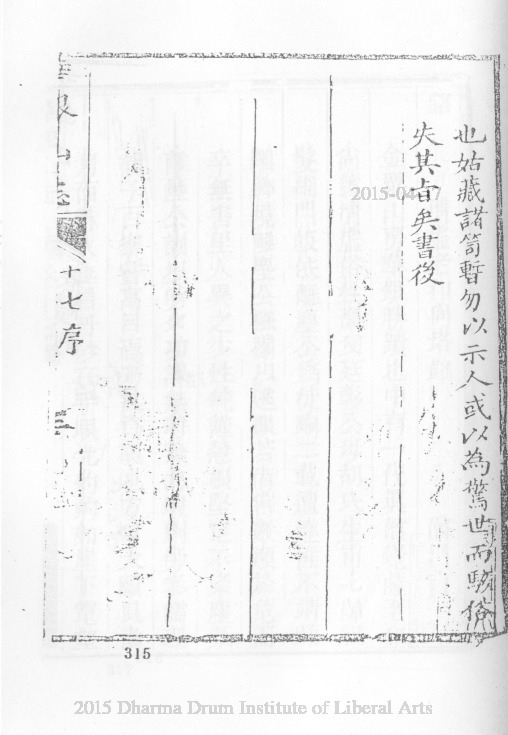 也姑藏諸笥暫勿以示人或以為驚世而駭俗
失其旨矣書後
銀山志
十七序
三
315
2015-04-17
2015 Dharma Drum Institute of Liberal Arts